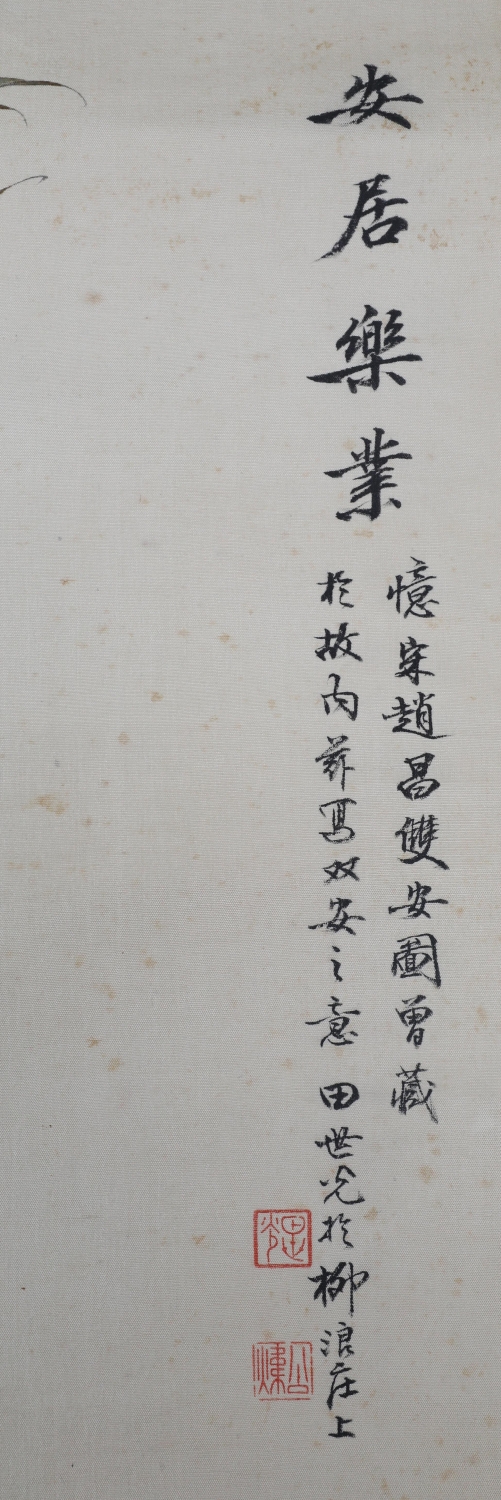 安居樂業
憶宋趙昌雙安圖曾藏
於故内兹寫双安之意 田世光於柳浪庄上
公煒